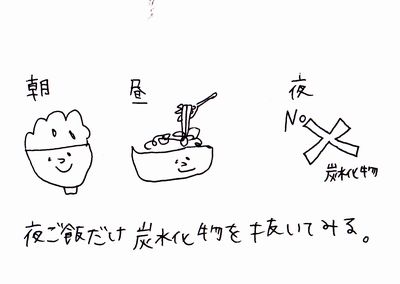 朝
昼
夜
No
炭水化物
夜ご飯だけ炭水化物を抜いてみる。